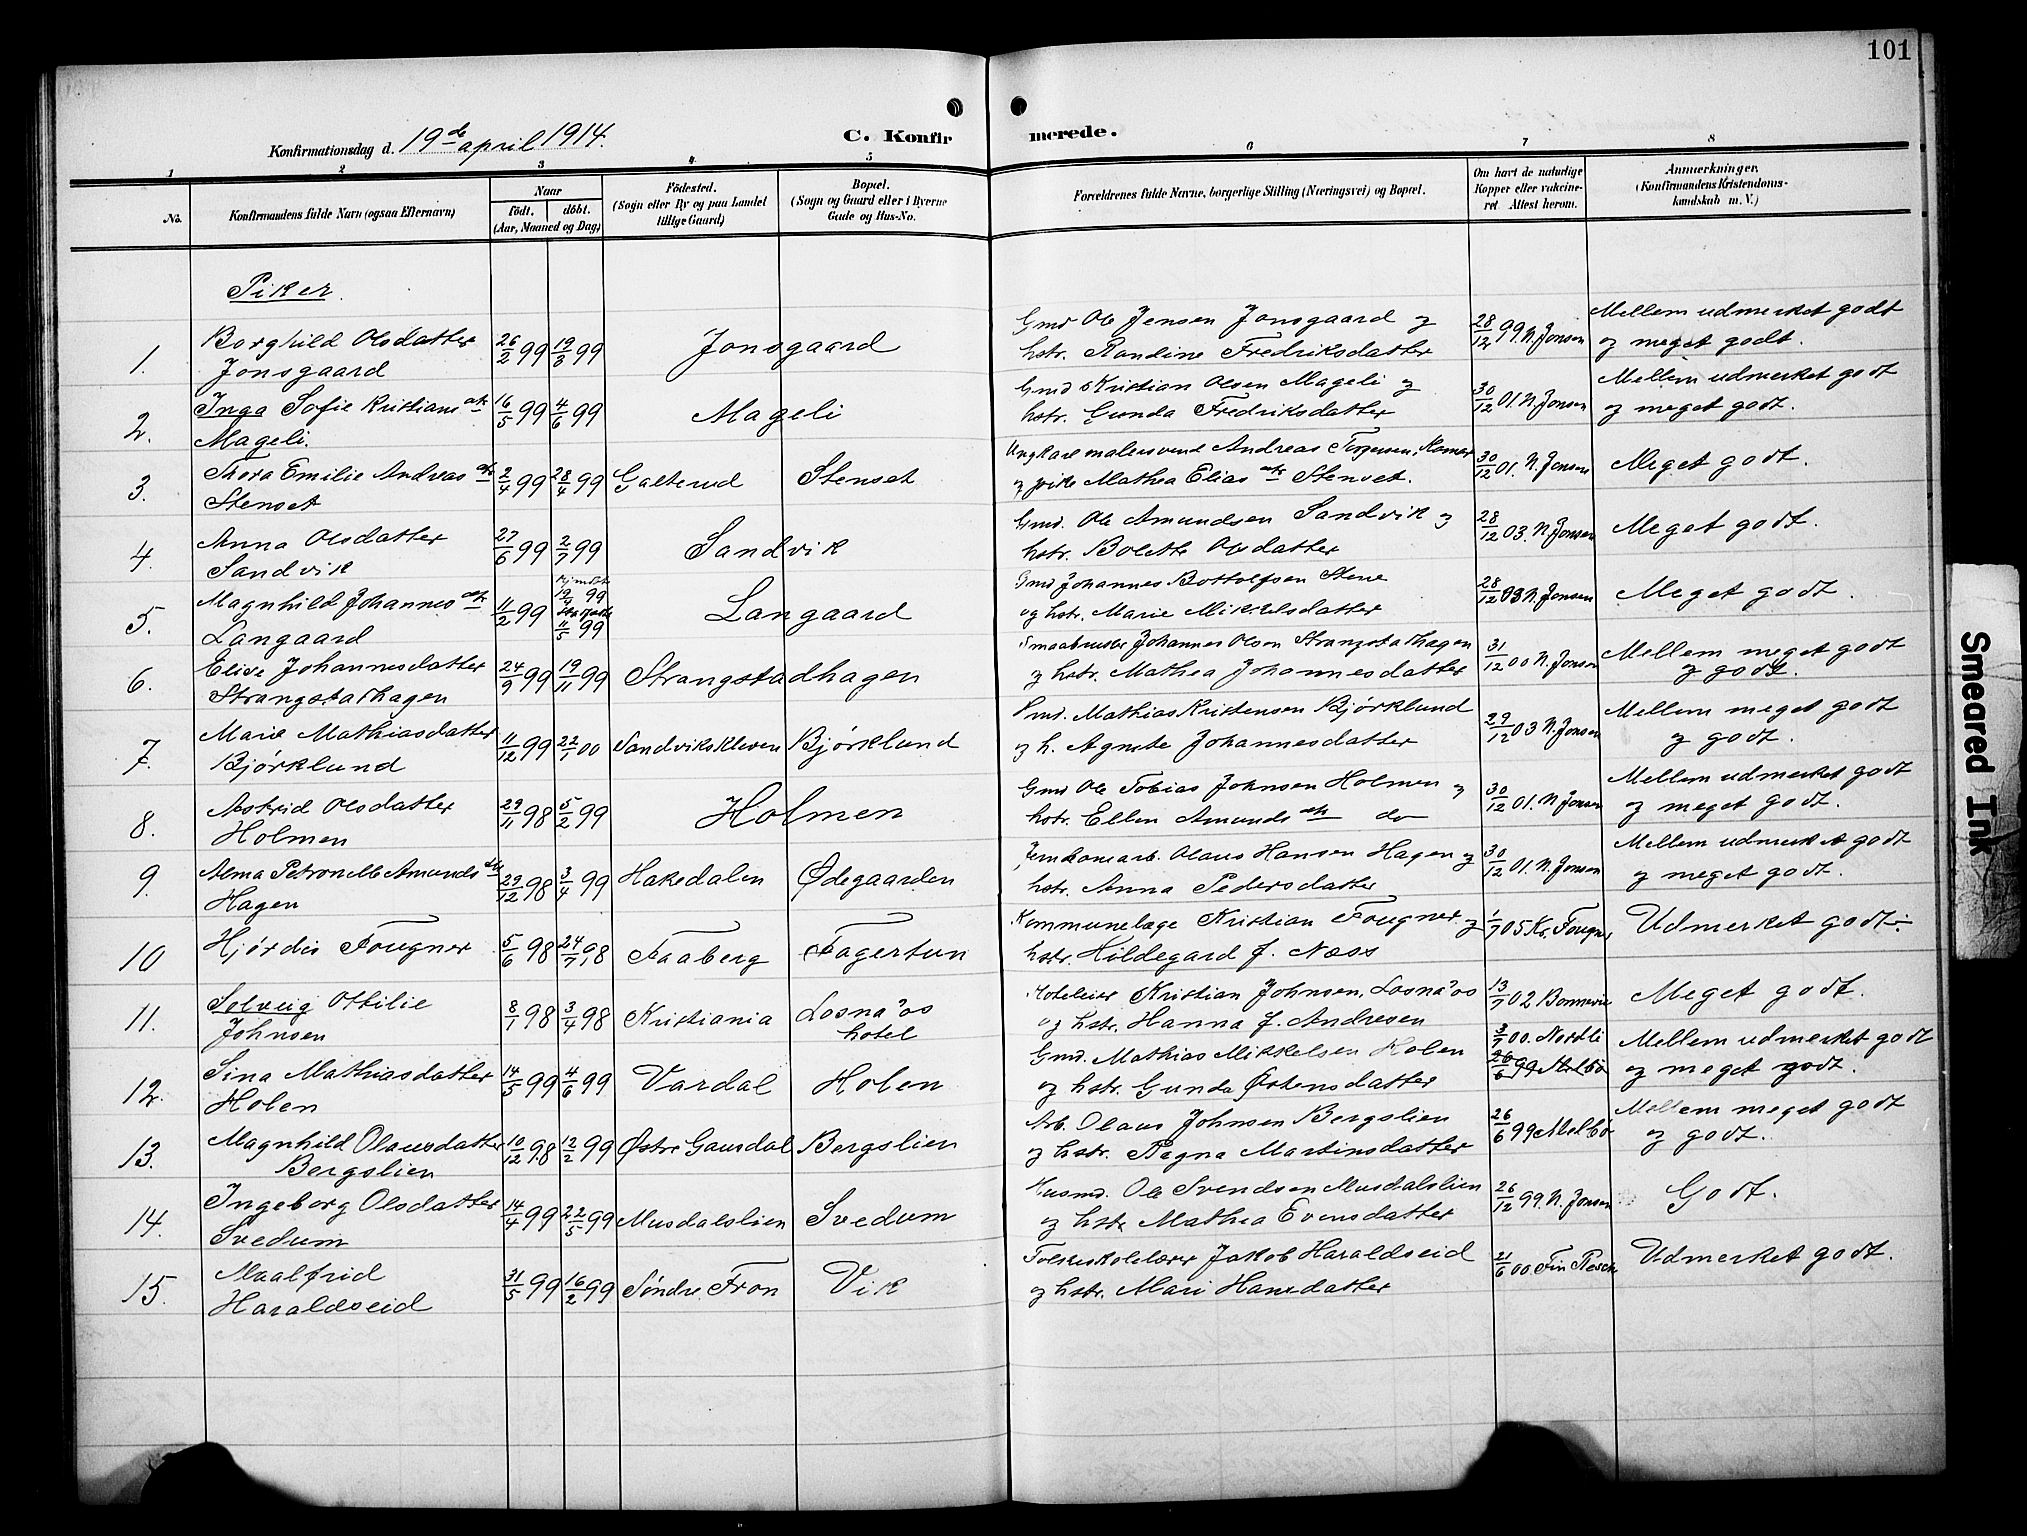 101
Konfirmationsdag d. 19de april 1914.
C. Konfirmerede.
1 2 3 4 5 6 7 8
No.
Konfirmandens fulde Navn (ogsaa Efternavn)
Naar
födt. döbt.
(Aar, Maaned og Dag)
Födested.
(Sogn eller By og paa Landet
tillige Gaard)
Bopæl.
(Sogn og Gaard eller i Byerne
Gade og Hus-No.
Forældrenes fulde Navne, borgerlige Stilling (Næringsvei) og Bopæl.
Om havt de naturlige
Kopper eller vakcine-
ret. Attest herom.
Anmærkninger.
(Konfirmandens Kristendoms-
kundskab m. V.)
Piker.
1. Borghild Olsdatter Jonsgaard 26/2 99 19/3 99 Jonsgaard
Gmd Ole Jensen Jonsgaard og
hstr. Randine Fredriksdatter
28/12 99 N. Jonsen
Mellem udmerket godt
og meget godt.
2. Inga Sofie Kristiansdtr Mageli. 16/5 99 4/6 99 Mageli
Gmd Kristian Olsen Mageli og
hstr. Gunda Fredriksdatter
30/12 01. N. Jonsen
Mellem udmerket godt
og meget godt.
3. Thora Emilie Andreasdtr Stenset 2/4 99 28/4 99 Galterud Stenset
Ungkarl malersvend Andreas Torgersen,
og pike Mathea Eliasdtr Stenset.
30/12 01. N. Jonsen
Meget godt.
4. Anna Olsdatter Sandvik 27/6 99 2/7 99 Sandvik
Gmd. Ole Amundsen Sandvik og
hstr. Bolette Olsdatter
28/12 03. N. Jonsen
Meget godt.
5. Magnhild Johannesdtr Langaard 11/2 99 hjmdt 19/4 99 11/5 99 Langaard
Gmd Johannes Bottolfsen Stene
og hstr. Marie Mikkelsdatter
28/12 03 N. Jonsen
Meget godt.
6. Elise Johannesdatter Strangstadhagen 24/9 99 19/11 99 Strangstadhagen
Smaabruker Johannes Olsen Strangstadhagen
og hstr. Mathea Johannesdatter
31/12 00 N. Jonsen
Mellem meget godt
og godt.
7. Marie Mathiasdatter Bjørklund 11/12 99 22/1 00 Sandvikskleven Bjørklund
Gmd. Mathias Kristensen Bjørklund
og h. Agnete Johannesdatter
29/12 03 N. Jonsen
Mellem meget godt
og godt.
8. Astrid Olsdatter Holmen 29/11 98 5/2 99 Holmen
Gmd Ole Tobias Johnsen Holmen og
hstr. Ellen Amundsdtr do
30/12 01. N. Jonsen
Mellem udmerket godt
og meget godt.
9. Alma Petronelle Amundsdtr Hagen 29/12 98 3/4 99 Hakedalen Ødegaarden
Jernbanearb. Olaus Hansen Hagen og
hstr. Anna Pedersdatter
30/12 01. N. Jonsen
Mellem udmerket godt
og meget godt.
10 Hjørdis Fougner 5/6 98 24/7 98 Faaberg Fagertun
Kommunelæge Kristian Fougner og
hstr. Hildegard f. Næss
1/7 05 Kr. Fougner
Udmerket godt.
11. Solveig Ottilie Johnsen 8/1 98 3/4 98 Kristiania Losnaos hotel
Hoteleier Kristian Johnsen, Losnaos
og hstr. Hanna f. Andresen
13/7 02 Bonnevie
Meget godt.
12. Sina Mathiasdatter Holen 14/5 99 4/6 99 Vardal Holen
Gmd. Mathias Mikkelsen Holen
og hstr. Gunda Østensdatter
3/7 00. Nordli
26/6 99 Melbö
Mellem udmerket godt
og meget godt.
13. Magnhild Olausdatter Bergslien 10/12 98 12/2 99 Østre Gausdal Bergslien
Arb. Olaus Johnsen Bergslien
og hstr. Ragna Martinsdatter
26/6 99 Melbö
Mellem meget godt
og godt.
14. Ingeborg Olsdatter Svedum 14/4 99 22/5 99 Musdalslien Svedum
Husmd. Ole Svendsen Musdalslien
og hstr Mathea Evensdatter
26/12 99. N. Jonsen
Godt.
15. Maalfrid Haraldseid 31/5 99 16/2 99 Søndre Fron Vik
Folkeskolelærer Jakob Haraldseid
og hstr. Mari Hansdatter
21/6 00.
Udmerket godt.
Smeared Ink